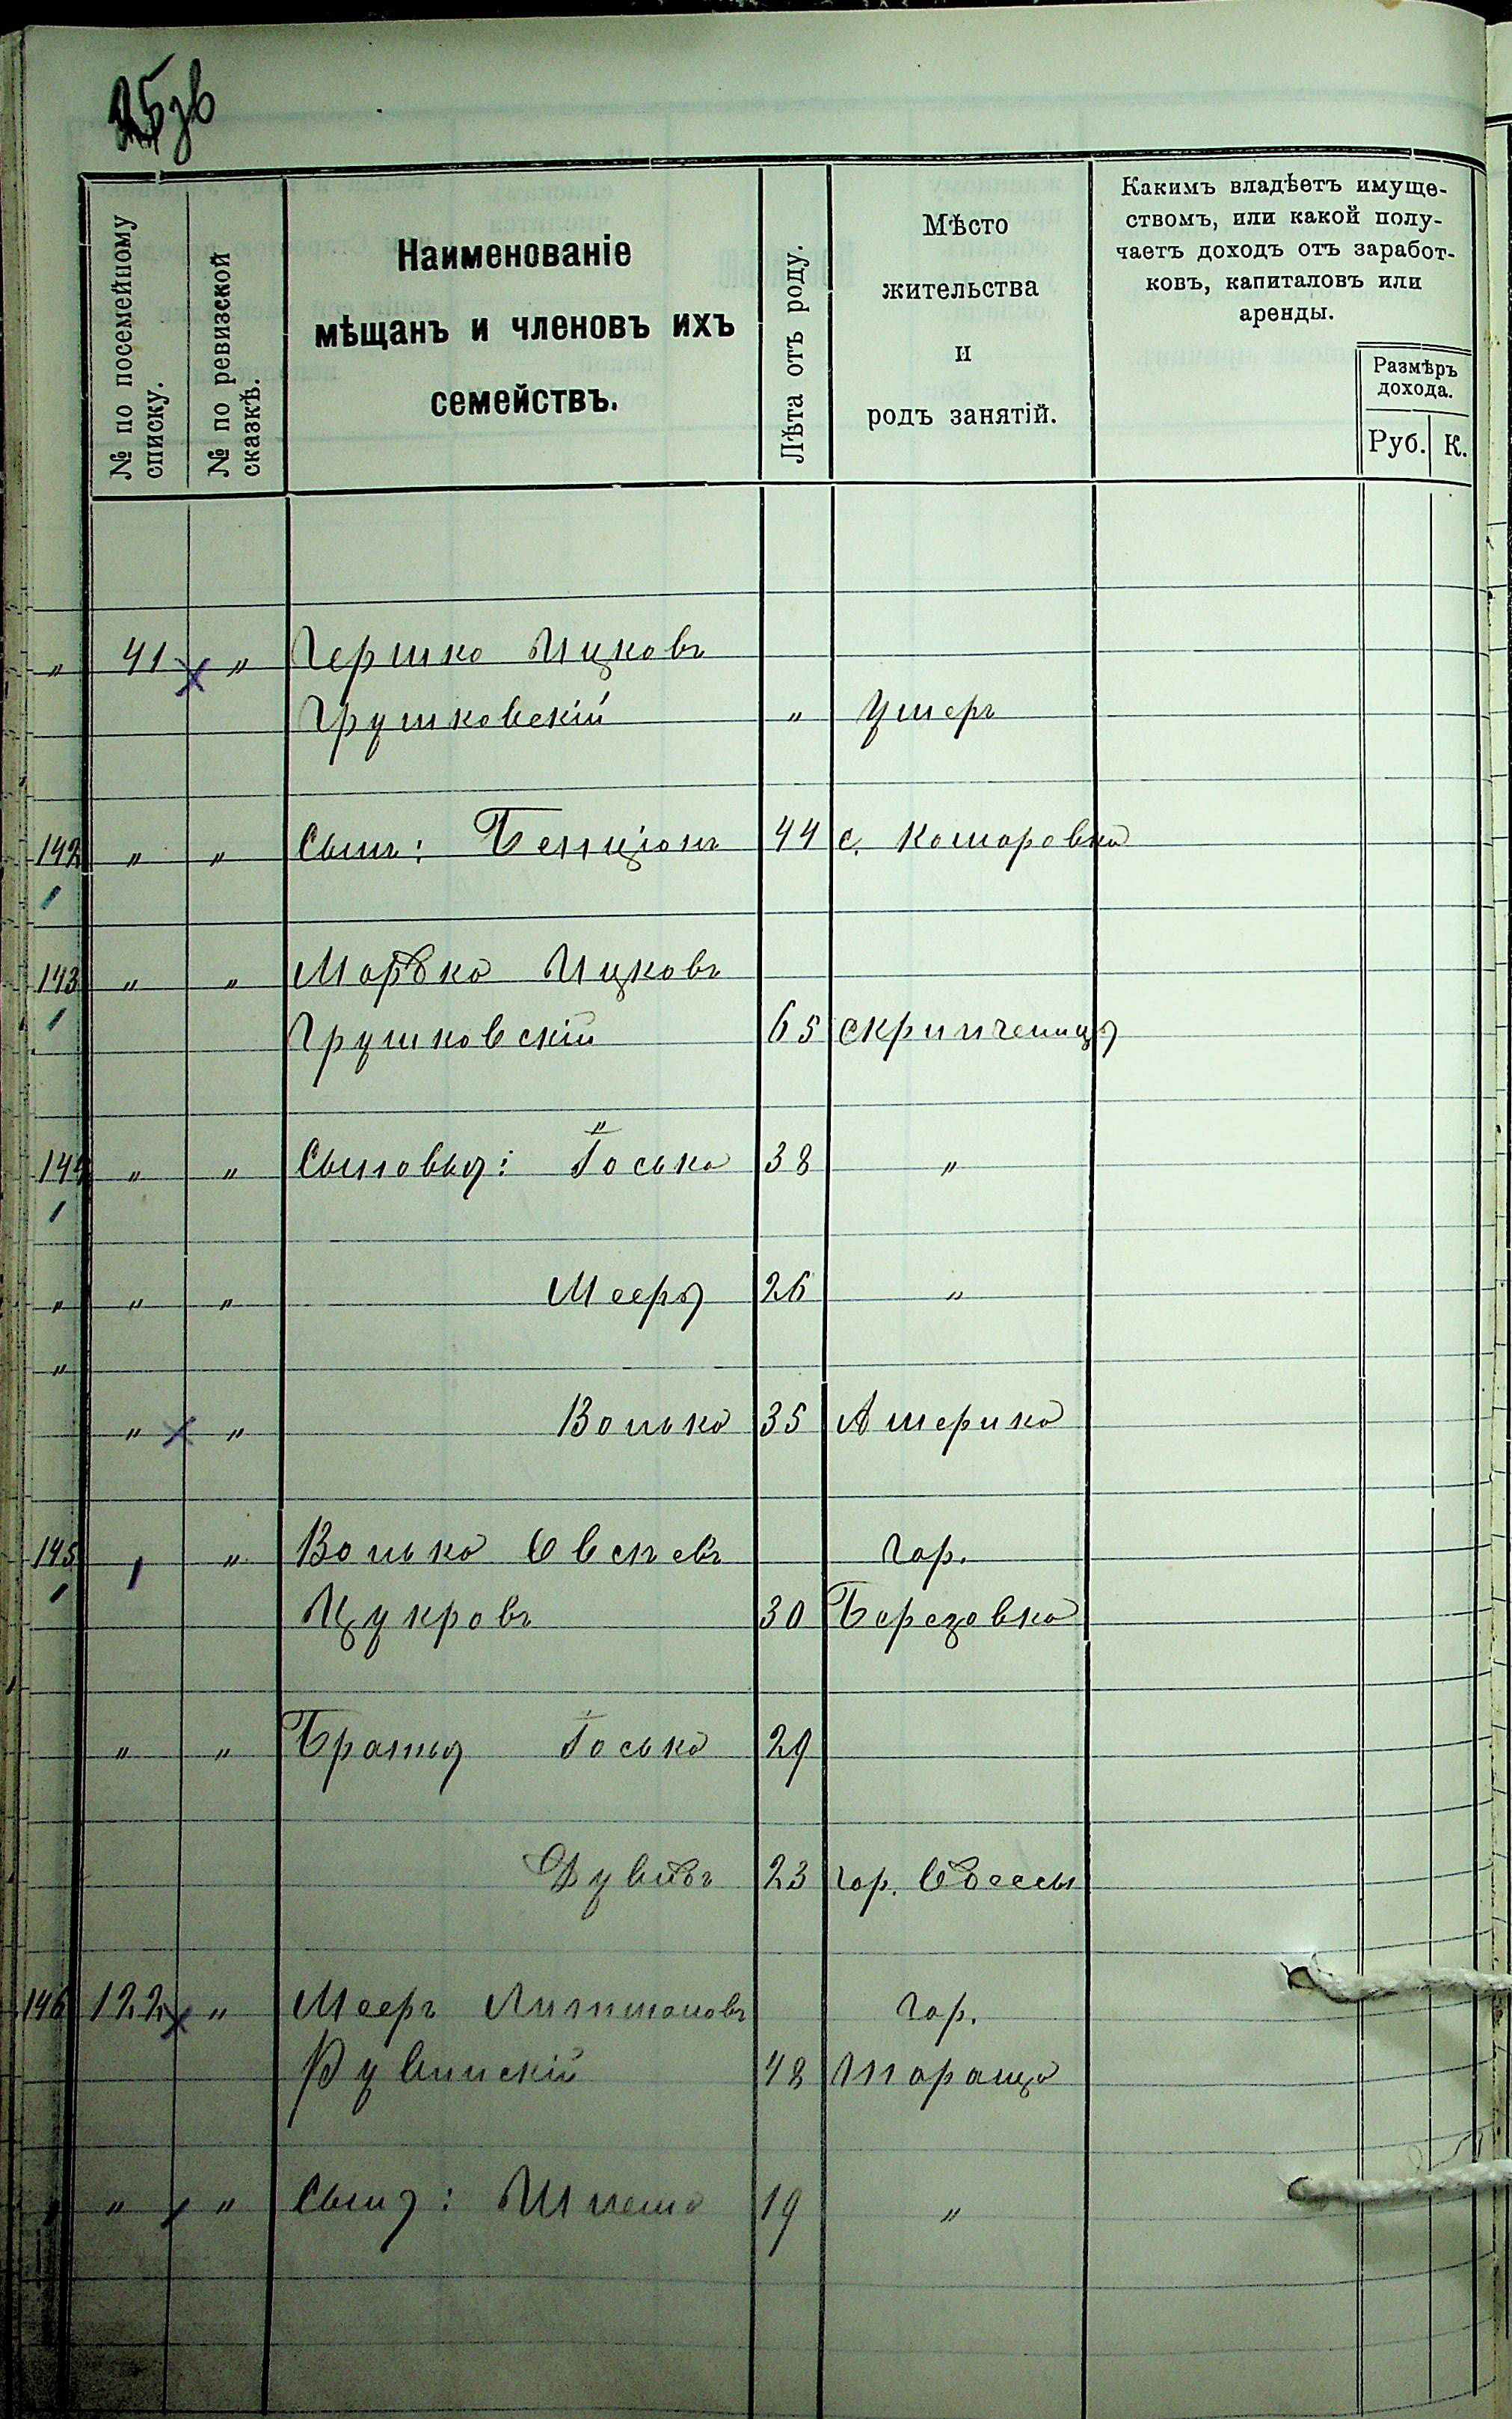 25 зв
№ по посемейному списку.
№ по ревизской сказкѣ.
Наименованіе
мѣщанъ и членовъ ихъ
семействъ.
Лѣта отъ роду.
Мѣсто
жительства
и
родъ занятій.
Какимъ владѣетъ имуще-
ствомъ, или какой полу-
чаетъ доходъ отъ заработ-
ковъ, капиталовъ или
аренды.
Размѣръ
дохода.
Руб. К.
" 41 " Гершко Ицковъ
Грушковскій " Умеръ
142 " " Сынъ: Бенціонъ 44 с. Комаровка
143 " " Мордко Ицковъ
Грушковскій 65 Скрипченцы
144 " " Сыновья: Іоська 38 "
" " " Мееръ 26 "
"
" " Волько 35 Америка
145 " Волько Овсѣевъ гор.
Цукровъ 30 Березовка
" " Братья Іоська 29
Дувидъ 23 гор. Одессы
146 122 " Мееръ Липмановъ гор.
Рувинскій 48 Тараща
" " Сынъ: Шлема 19 "